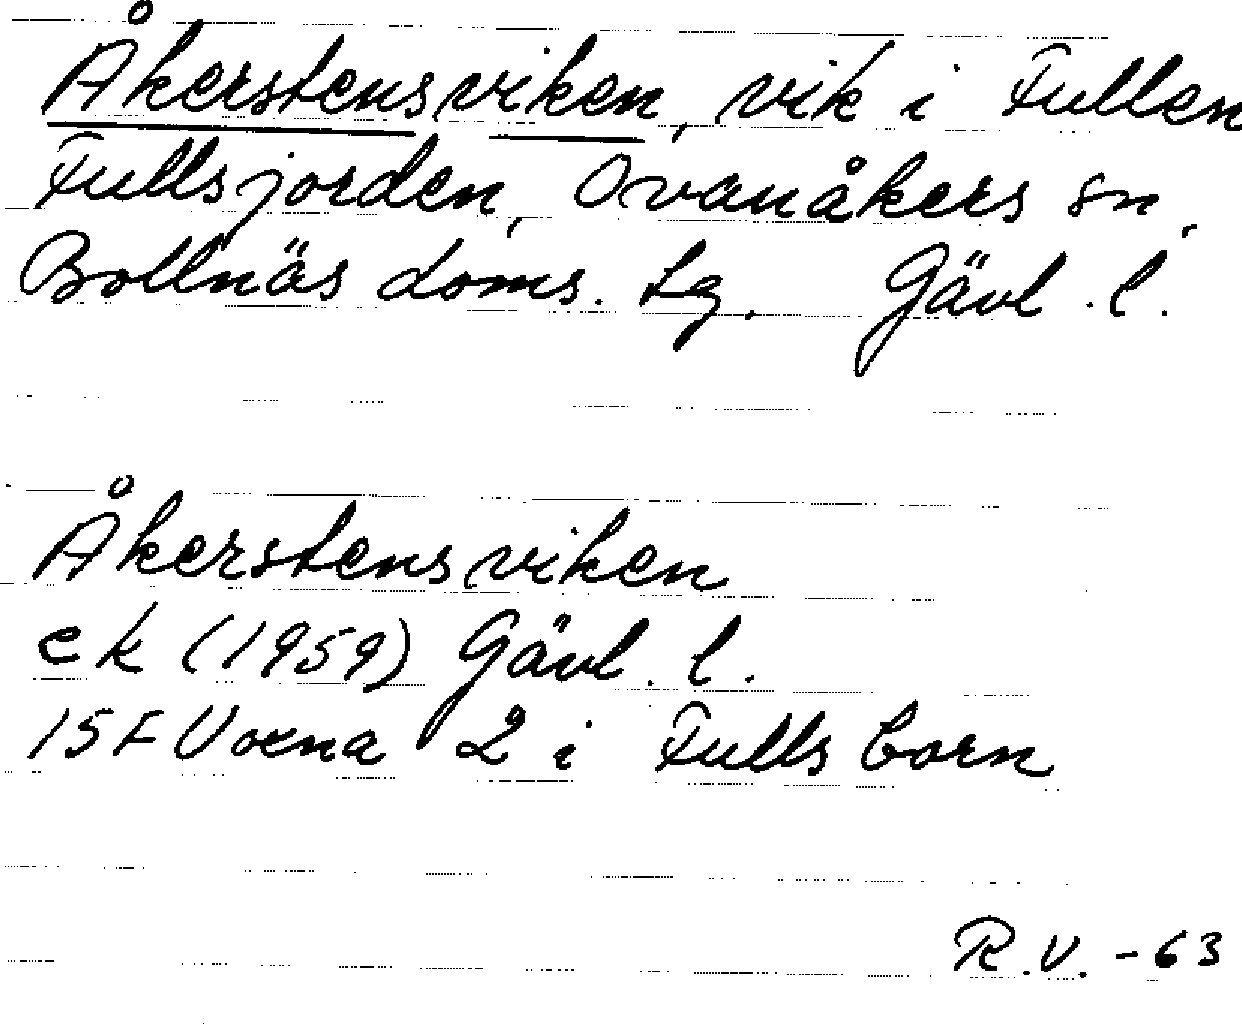 Åkerstensviken, vik i Fullen
Fullsjorden, Ovanåkers sn,
Bollnäs doms. tg. Gävl. l.
Åkerstensviken
ek (1959) Gävl. l.
15F Voxna 2 i Fulls
R.V. -63